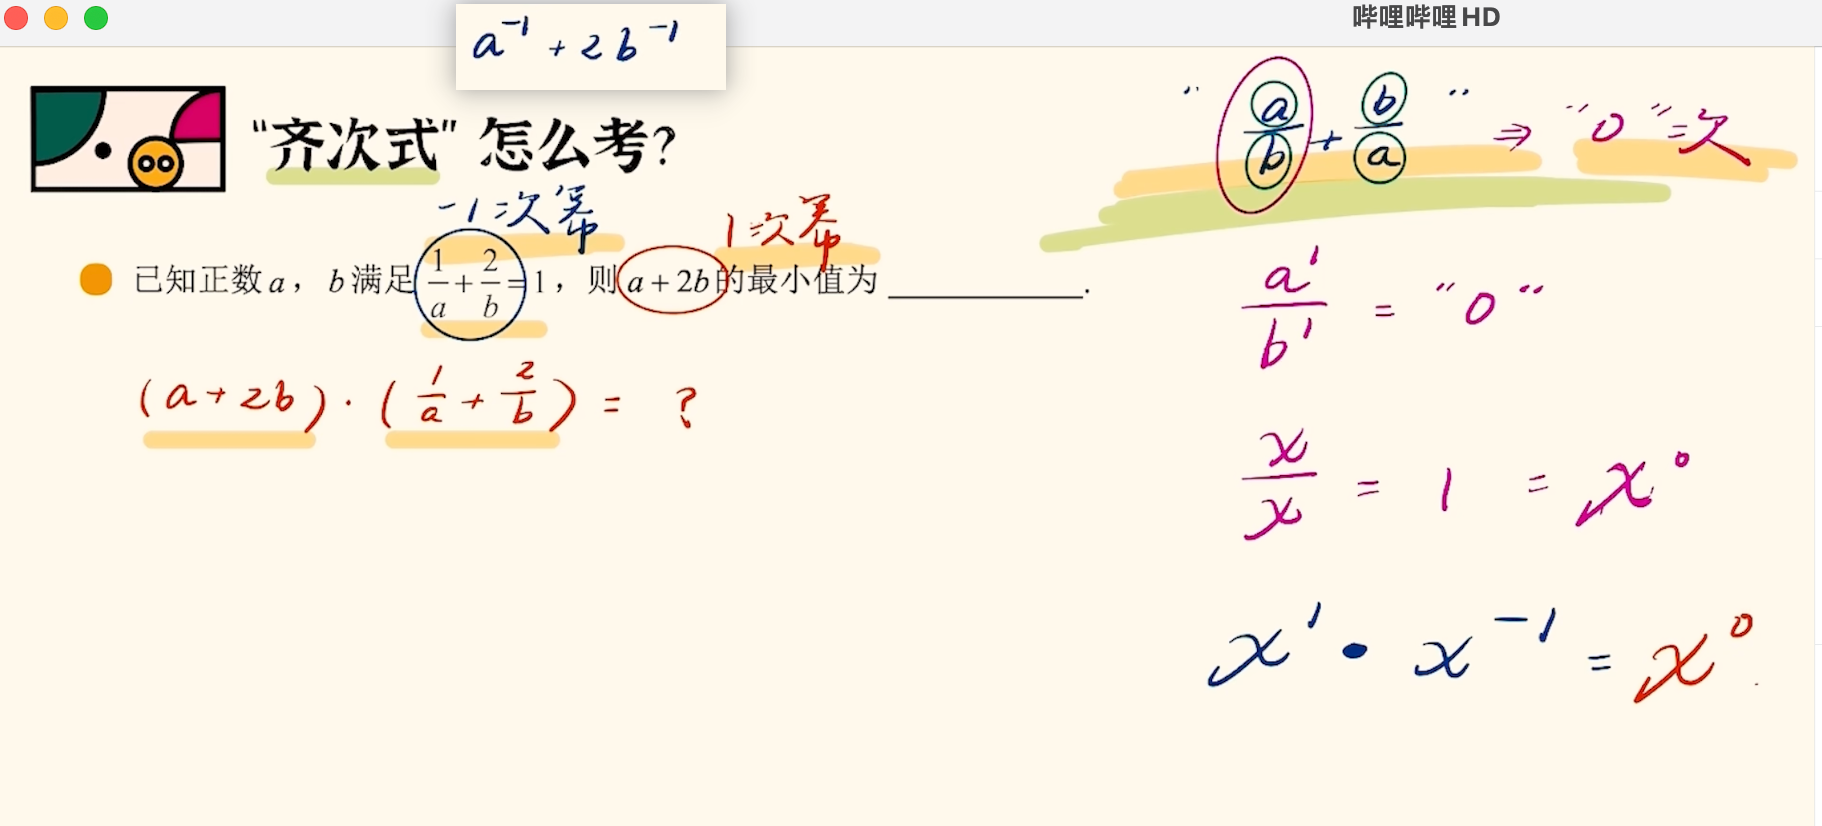 哔哩哔哩HD
a⁻¹ + 2b⁻¹
“齐次式” 怎么考?
-1次幂
1次幂
已知正数 a，b 满足 1/a + 2/b = 1，则 a + 2b 的最小值为 ____________.
(a+2b)·(1/a + 2/b) = ?
“ a/b + b/a ” ⇒ “0”次
a¹/b¹ = “0”
x/x = 1 = x⁰
x¹ · x⁻¹ = x⁰